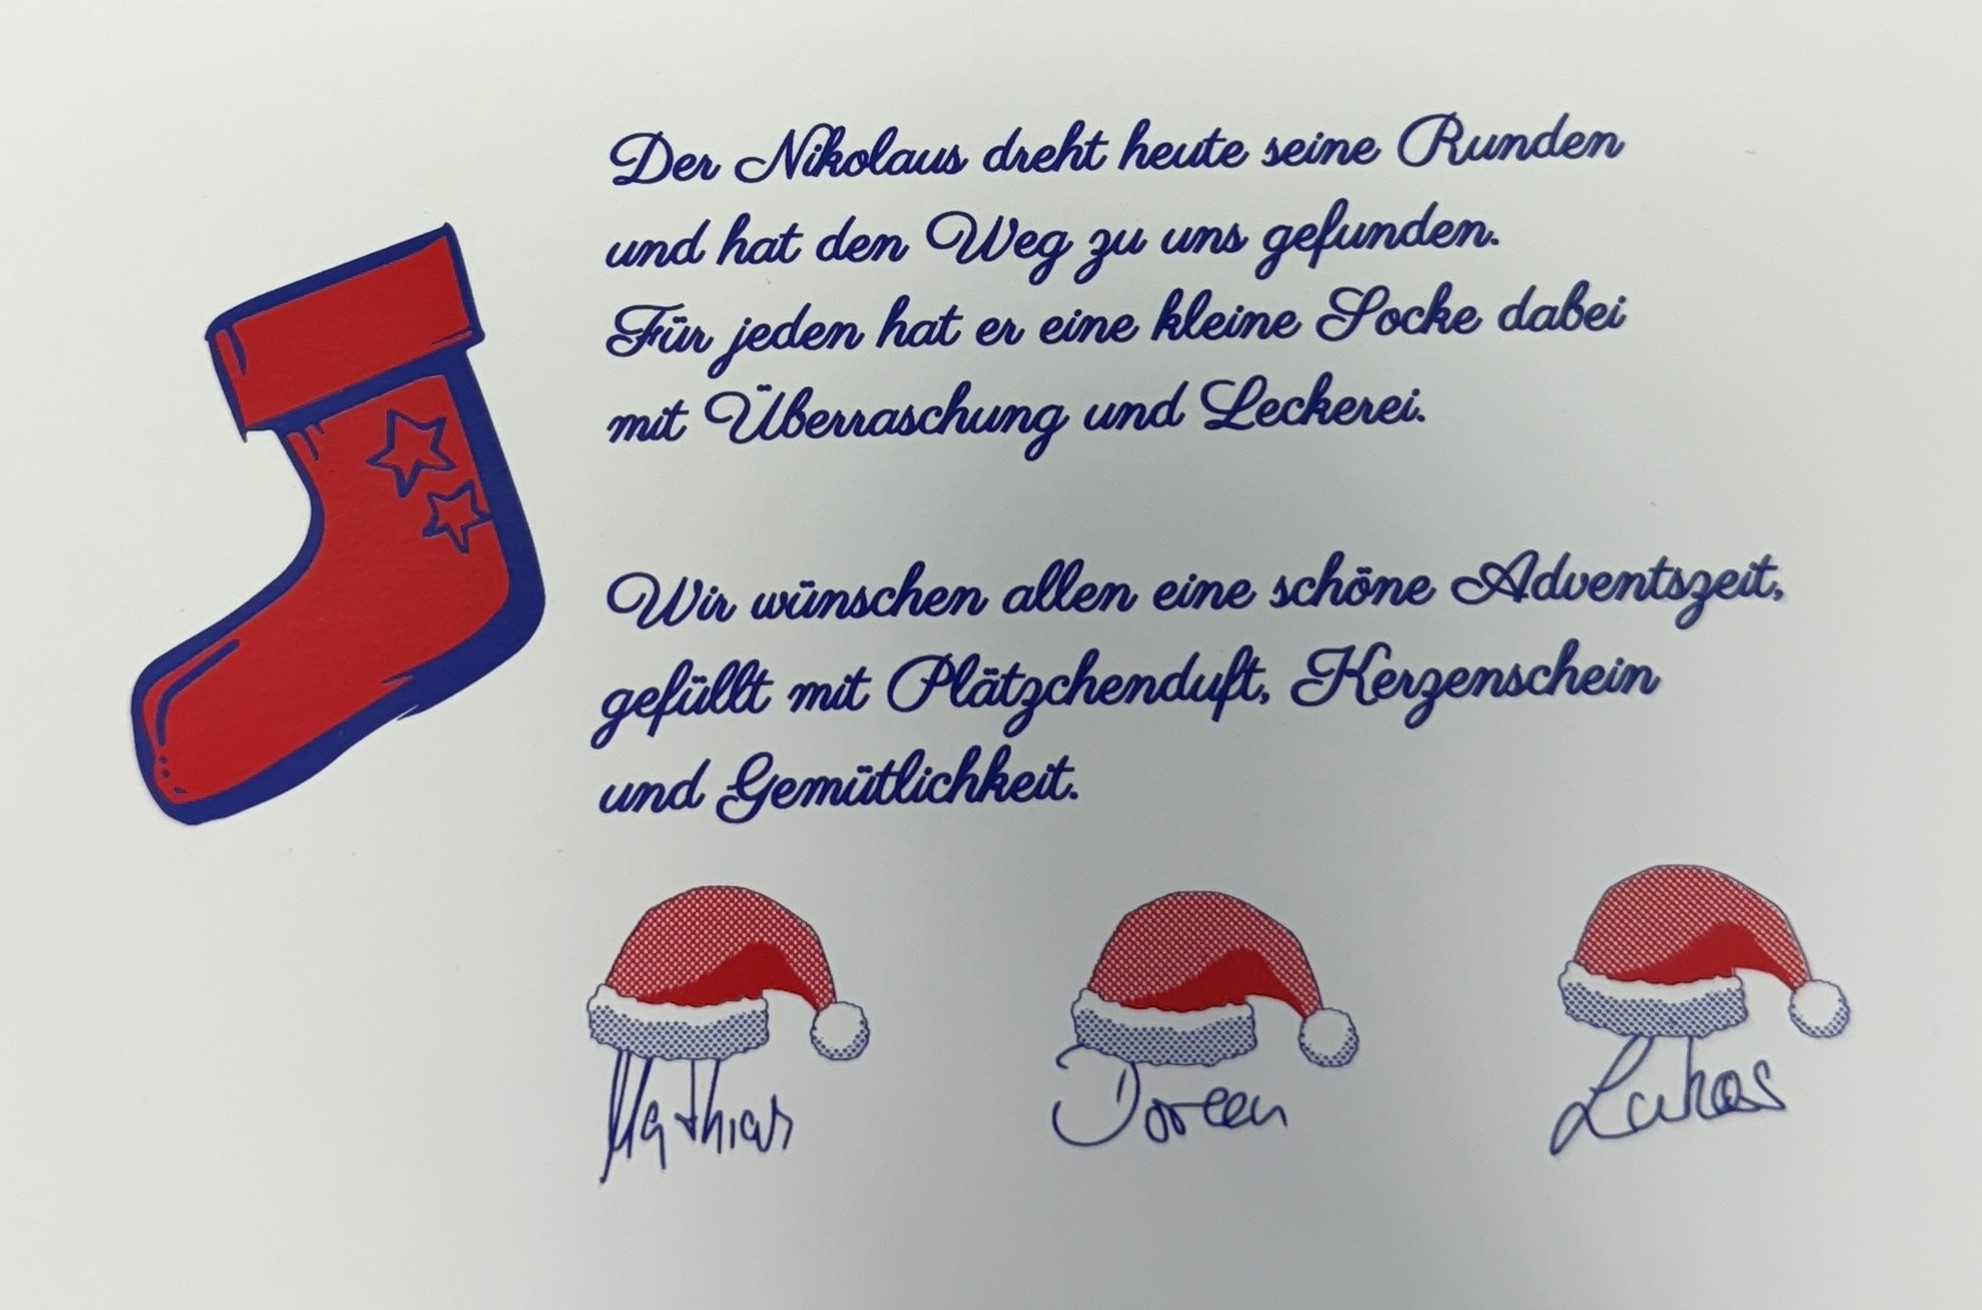 Der Nikolaus dreht heute seine Runden
und hat den Weg zu uns gefunden.
Für jeden hat er eine kleine Socke dabei
mit Überraschung und Leckerei.
Wir wünschen allen eine schöne Adventszeit,
gefüllt mit Plätzchenduft, Kerzenschein
und Gemütlichkeit.
Mathias Doreen Lukas